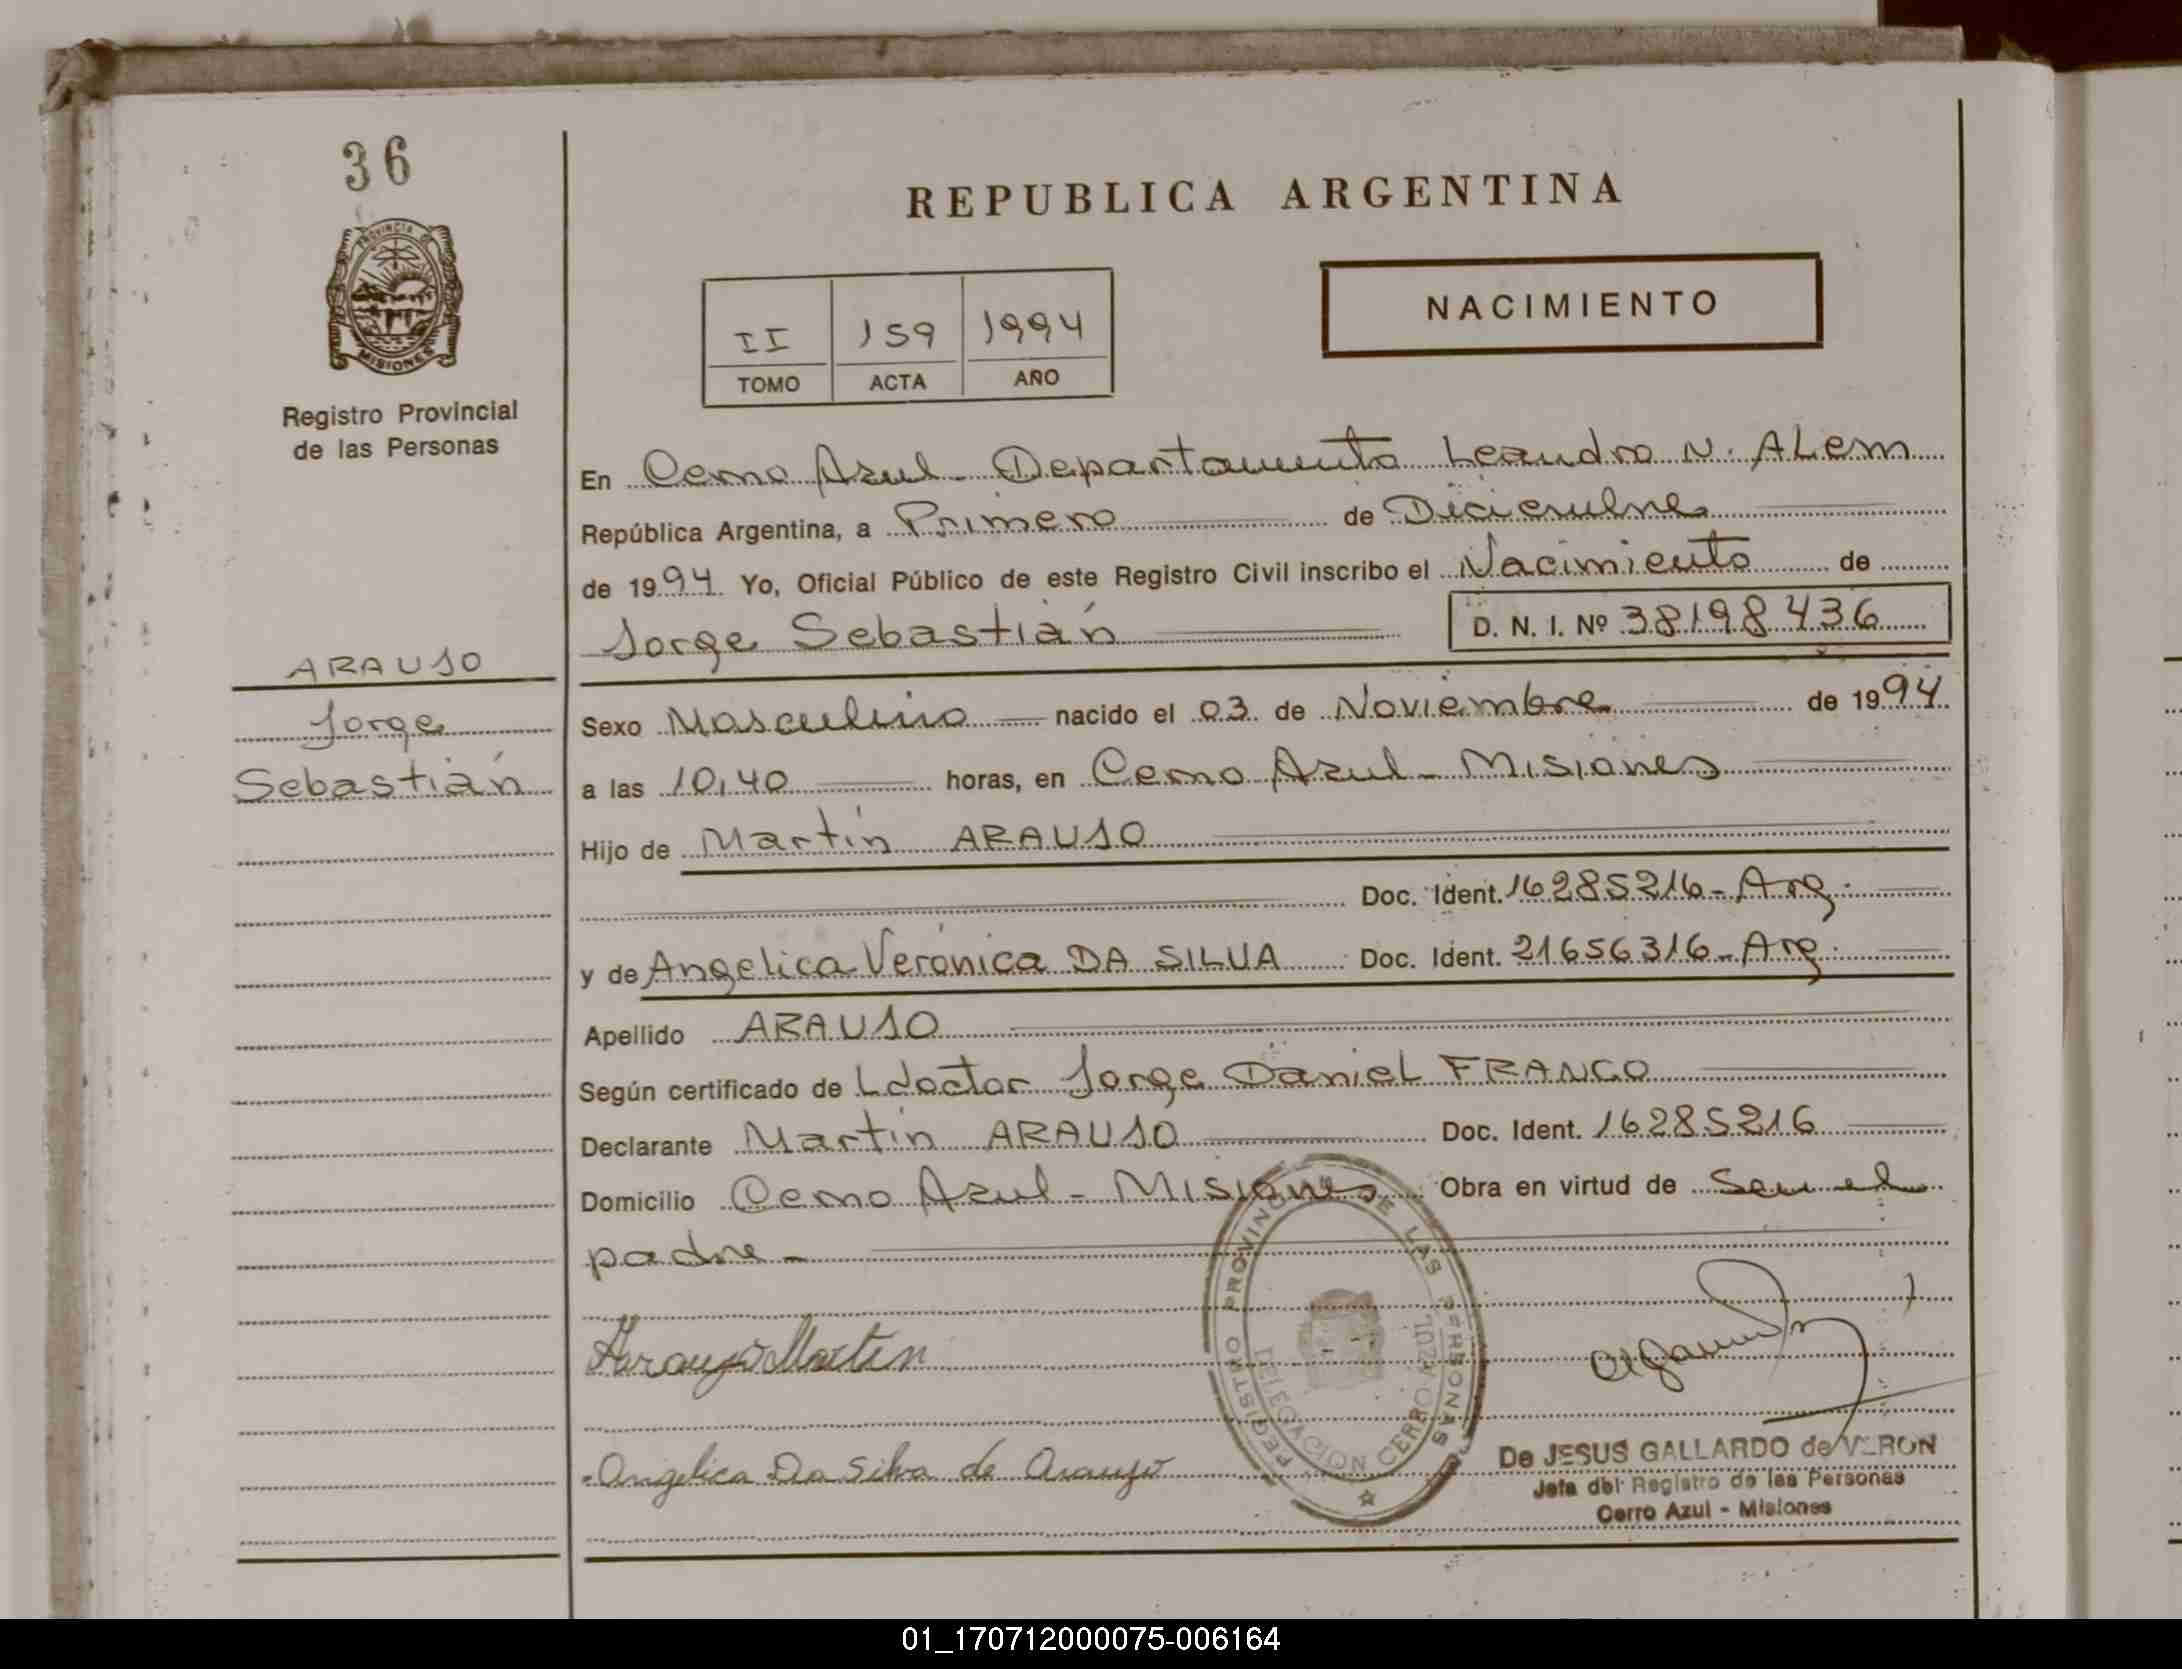 36
PROVINCIA DE
MISIONES
Registro Provincial
de las Personas
ARAUJO
Jorge
Sebastián
REPUBLICA ARGENTINA
NACIMIENTO
II 159 1994
TOMO ACTA AÑO
En Cerro Azul - Departamento Leandro N. ALem
República Argentina, a Primero de Diciembre
de 1994 Yo, Oficial Público de este Registro Civil inscribo el Nacimiento de
Jorge Sebastián D. N. I. Nº 38198436
Sexo Masculino nacido el 03 de Noviembre de 1994
a las 10,40 horas, en Cerro Azul - Misiones
Hijo de Martín ARAUJO
Doc. Ident. 16285216 - Arg.
y de Angelica Verónica DA SILVA Doc. Ident. 21656316 - Arg.
Apellido ARAUJO
Según certificado de L doctor Jorge Daniel FRANCO
Declarante Martín ARAUJO Doc. Ident. 16285216
Domicilio Cerro Azul - Misiones Obra en virtud de Ser el
padre -
Araujo Martin
Angelica Da Silva de Araujo
REGISTRO PROVINCIAL DE LAS PERSONAS
DELEGACION CERRO AZUL
De JESUS GALLARDO de VERON
Jefa del Registro de las Personas
Cerro Azul - Misiones
01_170712000075-006164